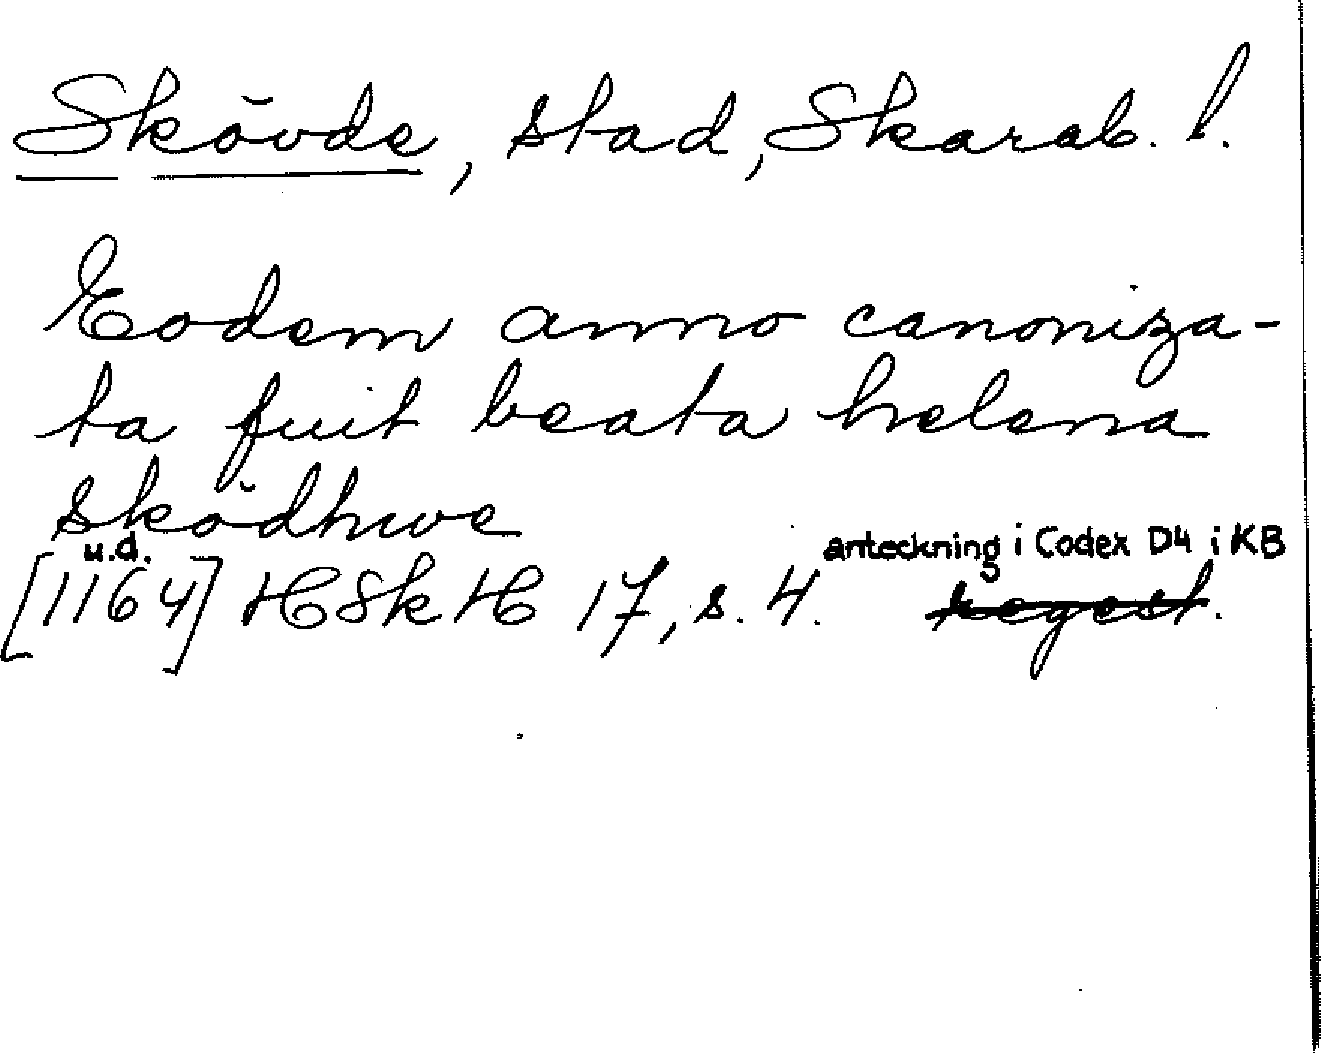 Skövde, stad, Skarab. l.
Eodem anno canoniza-
ta fuit beata helena
sködhwe
u.d. anteckning i Codex D4 i KB
[1164] HSkH 17, s. 4. regest.